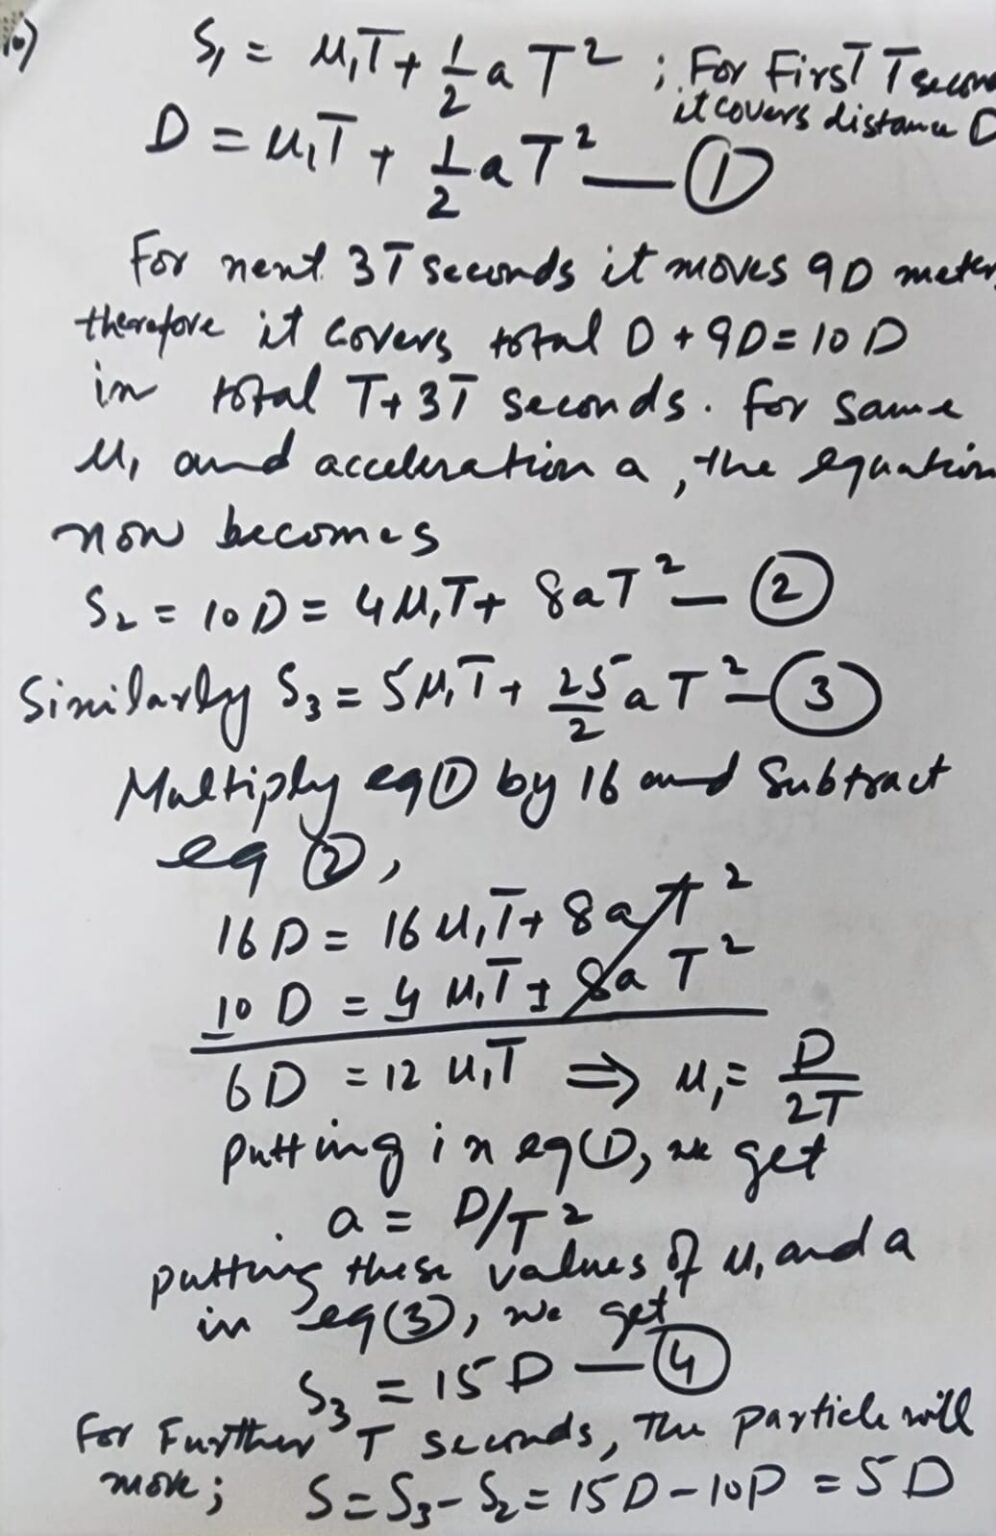 10) S₁ = u₁T + 1/2 a T² ; For First T secon
it covers distance D
D = u₁T + 1/2 a T² — ①
For next 3T seconds it moves 9D meter
therefore it covers total D + 9D = 10D
in total T+3T seconds. For same
u₁ and acceleration a, the equation
now becomes
S₂ = 10D = 4u₁T + 8aT² — ②
Similarly S₃ = 5u₁T + 25/2 a T² — ③
Multiply eq ① by 16 and Subtract
eq ②,
16D = 16u₁T + 8aT²
10D = 4u₁T ± 8aT²
6D = 12u₁T ⇒ u₁ = D/2T
putting in eq ①, we get
a = D/T²
putting these values of u₁ and a
in eq (3), we get
S₃ = 15D — ④
For Further T seconds, The particle will
move; S = S₃ - S₂ = 15D - 10D = 5D